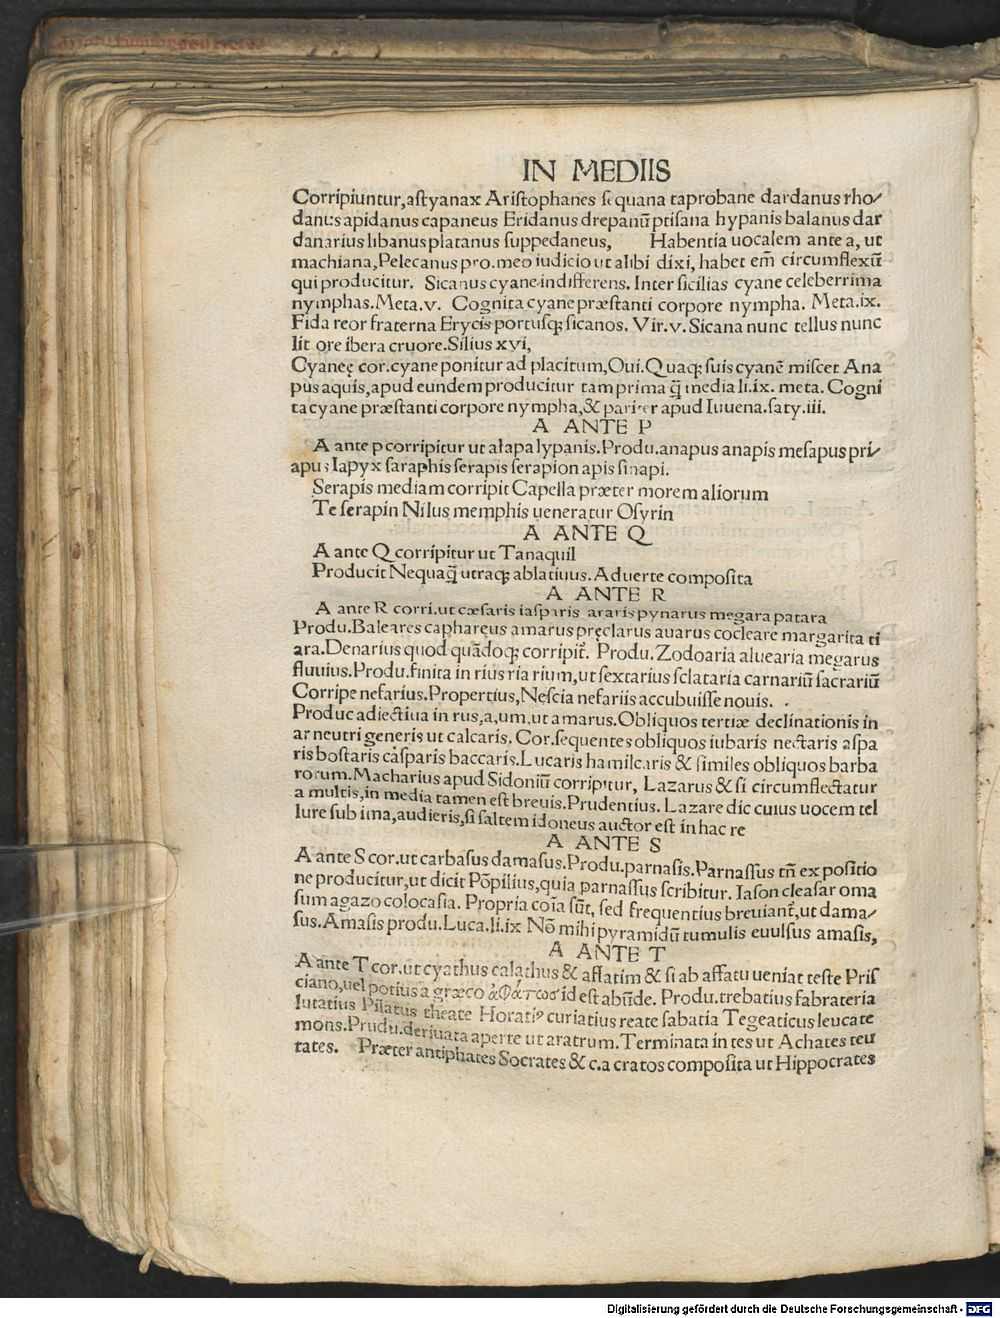 IN MEDIIS
Corripiuntur,astyanax Aristophanes sequana taprobane dardanus rho/
danus apidanus capaneus Eridanus drepanū ptisana hypanis balanus dar
danarius libanus platanus suppedaneus, Habentia uocalem ante a, ut
machiana,Pelecanus pro.meo iudicio ut alibi dixi, habet em̄ circumflexū
qui producitur. Sicanus cyane indifferens. Inter sicilias cyane celeberrima
nymphas.Meta.v. Cognita cyane præstanti corpore nympha. Meta.ix.
Fida reor fraterna Erycis portusq; sicanos. Vir.v. Sicana nunc tellus nunc
lit ore ibera cruore.Silius xvi,
Cyaneę cor.cyane ponitur ad placitum,Oui.Quaq; suis cyanē miscet Ana
pus aquis,apud eundem producitur tam prima q̄ media li.ix. meta. Cogni
ta cyane præstanti corpore nympha,& pariter apud Iuuena.saty.iii.
A ANTE P
A ante p corripitur ut alapa lypanis.Produ.anapus anapis mesapus pri/
apus Iapyx saraphis serapis serapion apis sinapi.
Serapis mediam corripit Capella præter morem aliorum
Te serapin Nilus memphis ueneratur Osyrin
A ANTE Q
A ante Q corripitur ut Tanaquil
Producit Nequaq̄ utraq; ablatiuus. Aduerte composita
A ANTE R
A ante R corri.ut cæsaris iasparis araris pynarus megara patara
Produ.Baleares caphareus amarus pręclarus auarus cocleare margarita ti
ara.Denarius quod quādoq; corripit̄. Produ. Zodoaria aluearia megarus
fluuius.Produ.finita in rius ria rium,ut sextarius sclataria carnariū sacrariū
Corripe nefarius.Propertius,Nescia nefariis accubuisse nouis.
Produc adiectiua in rus,a,um,ut amarus.Obliquos tertiæ declinationis in
ar neutri generis ut calcaris. Cor.sequentes obliquos iubaris nectaris aspa
ris bostaris casparis baccaris.Lucaris hamilcaris & similes obliquos barba
rorum.Macharius apud Sidoniū corripitur, Lazarus & si circumflectatur
a multis,in media tamen est breuis.Prudentius. Lazare dic cuius uocem tel
lure sub ima,audieris,si saltem idoneus auctor est in hac re
A ANTE S
A ante S cor.ut carbasus damasus.Produ.parnasis.Parnassus tn̄ ex positio
ne producitur,ut dicit Pōpilius,quia parnassus scribitur. Iason cleasar oma
sum agazo colocasia. Propria coīa sūt, sed frequentius breuiant̄,ut dama/
sus.Amasis produ.Luca.li.ix Nō mihi pyramidū tumulis euulsus amasis,
A ANTE T
A ante T cor.ut cyathus calathus & affatim & si ab affatu ueniat teste Pris
ciano,uel potius a græco ἀφάτωσ id est abūde. Produ.trebatius fabrateria
lutatius Pilatus theate Horatiꝰ curiatius reate sabatia Tegeaticus leucate
mons.Prudu.deriuata aperte ut aratrum.Terminata in tes ut Achates teu
tates. Præter antiphates Socrates & c.a cratos composita ut Hippocrates
Digitalisierung gefördert durch die Deutsche Forschungsgemeinschaft - DFG